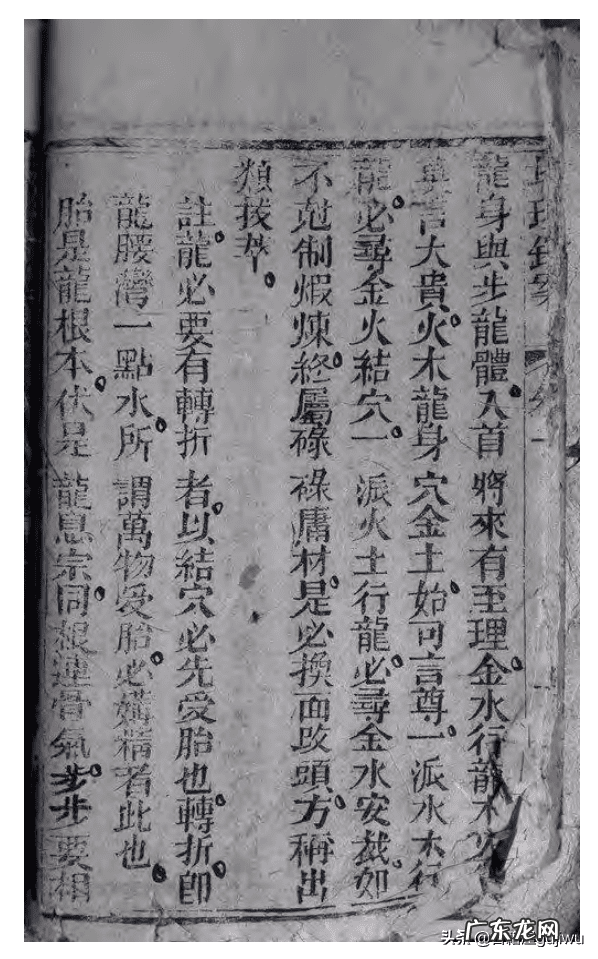 龍身與步龍體。入首將來有至理。金水行龍木火
真言大貴。火木龍身穴金土。始可言尊。一派水木行
龍。必尋金火結穴。一派火土行龍。必尋金水安裁。如
不尅制煆煉。終屬碌碌庸材。是必換面改頭。方稱出
類拔萃。
註。龍必要有轉折者。以結穴必先受胎也。轉折即
龍腰灣一點水。所謂萬物受胎。必媾精者此也。
胎是龍根本。伏是龍息宗。同根連骨氣。步步要相
广东龙网
头条@古籍屋gujwu